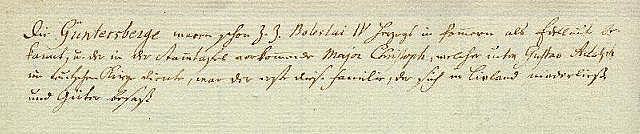 Die Güntersberge waren schon z. Z. Bobislai IV Herzogs in Pomern als Edelleute be-
kannt, u. der in der Stammtafel vorkommende Major Christoph, welcher unter Gustav Adolph
im teutschen Kriege diente, war der erste dieser Familie, der sich in Livland niederließ
und Güter besaß